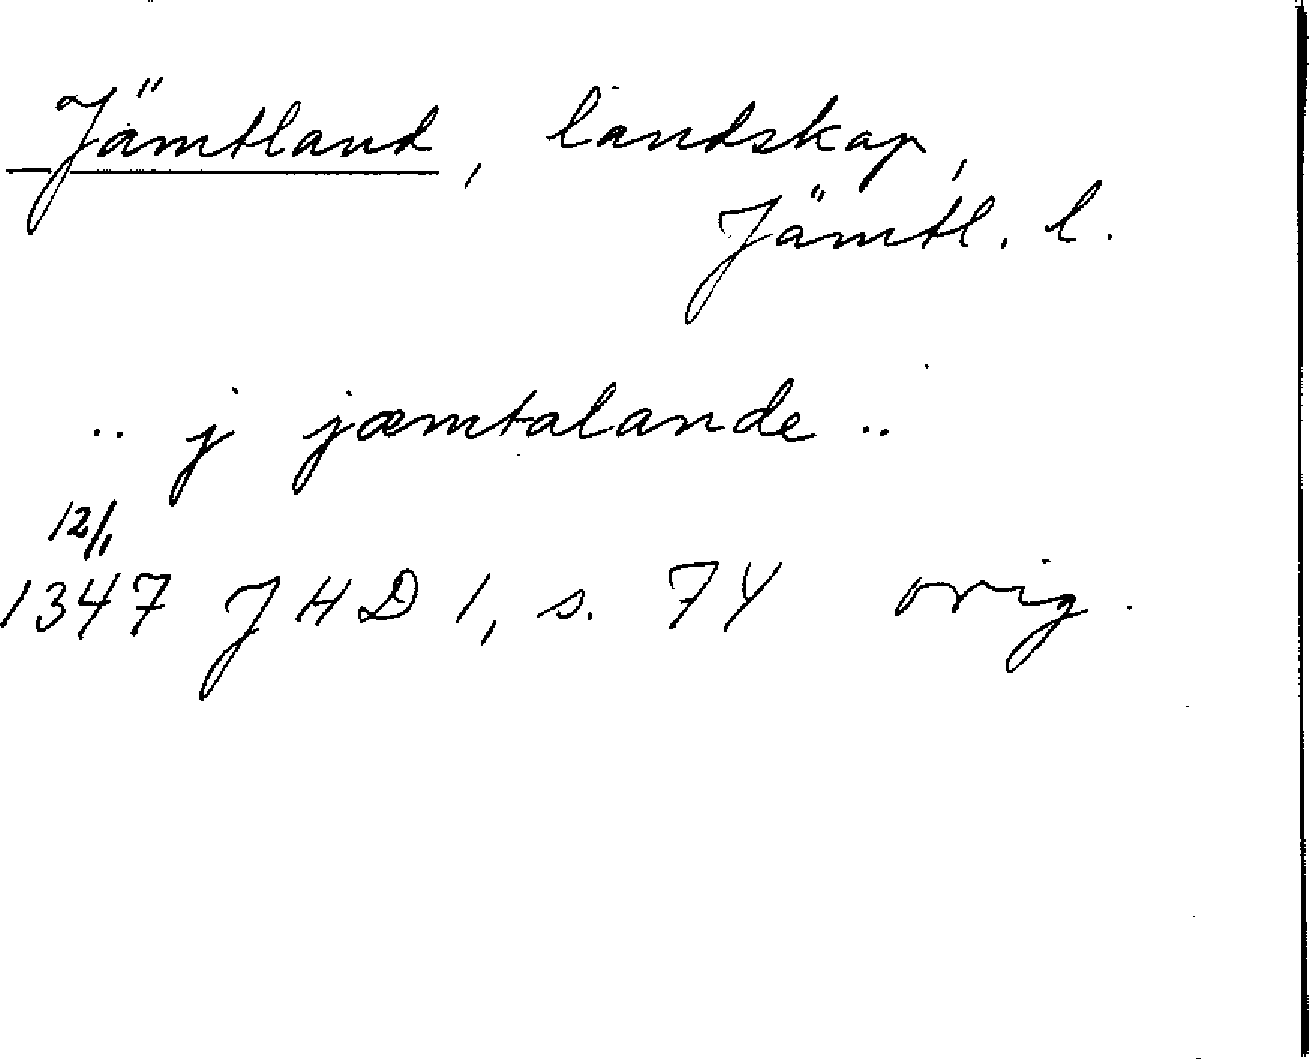 Jämtland, landskap,
Jämtl. l.
.. j jæmtalande ..
12/1
1347 JHD 1, s. 74 orig.